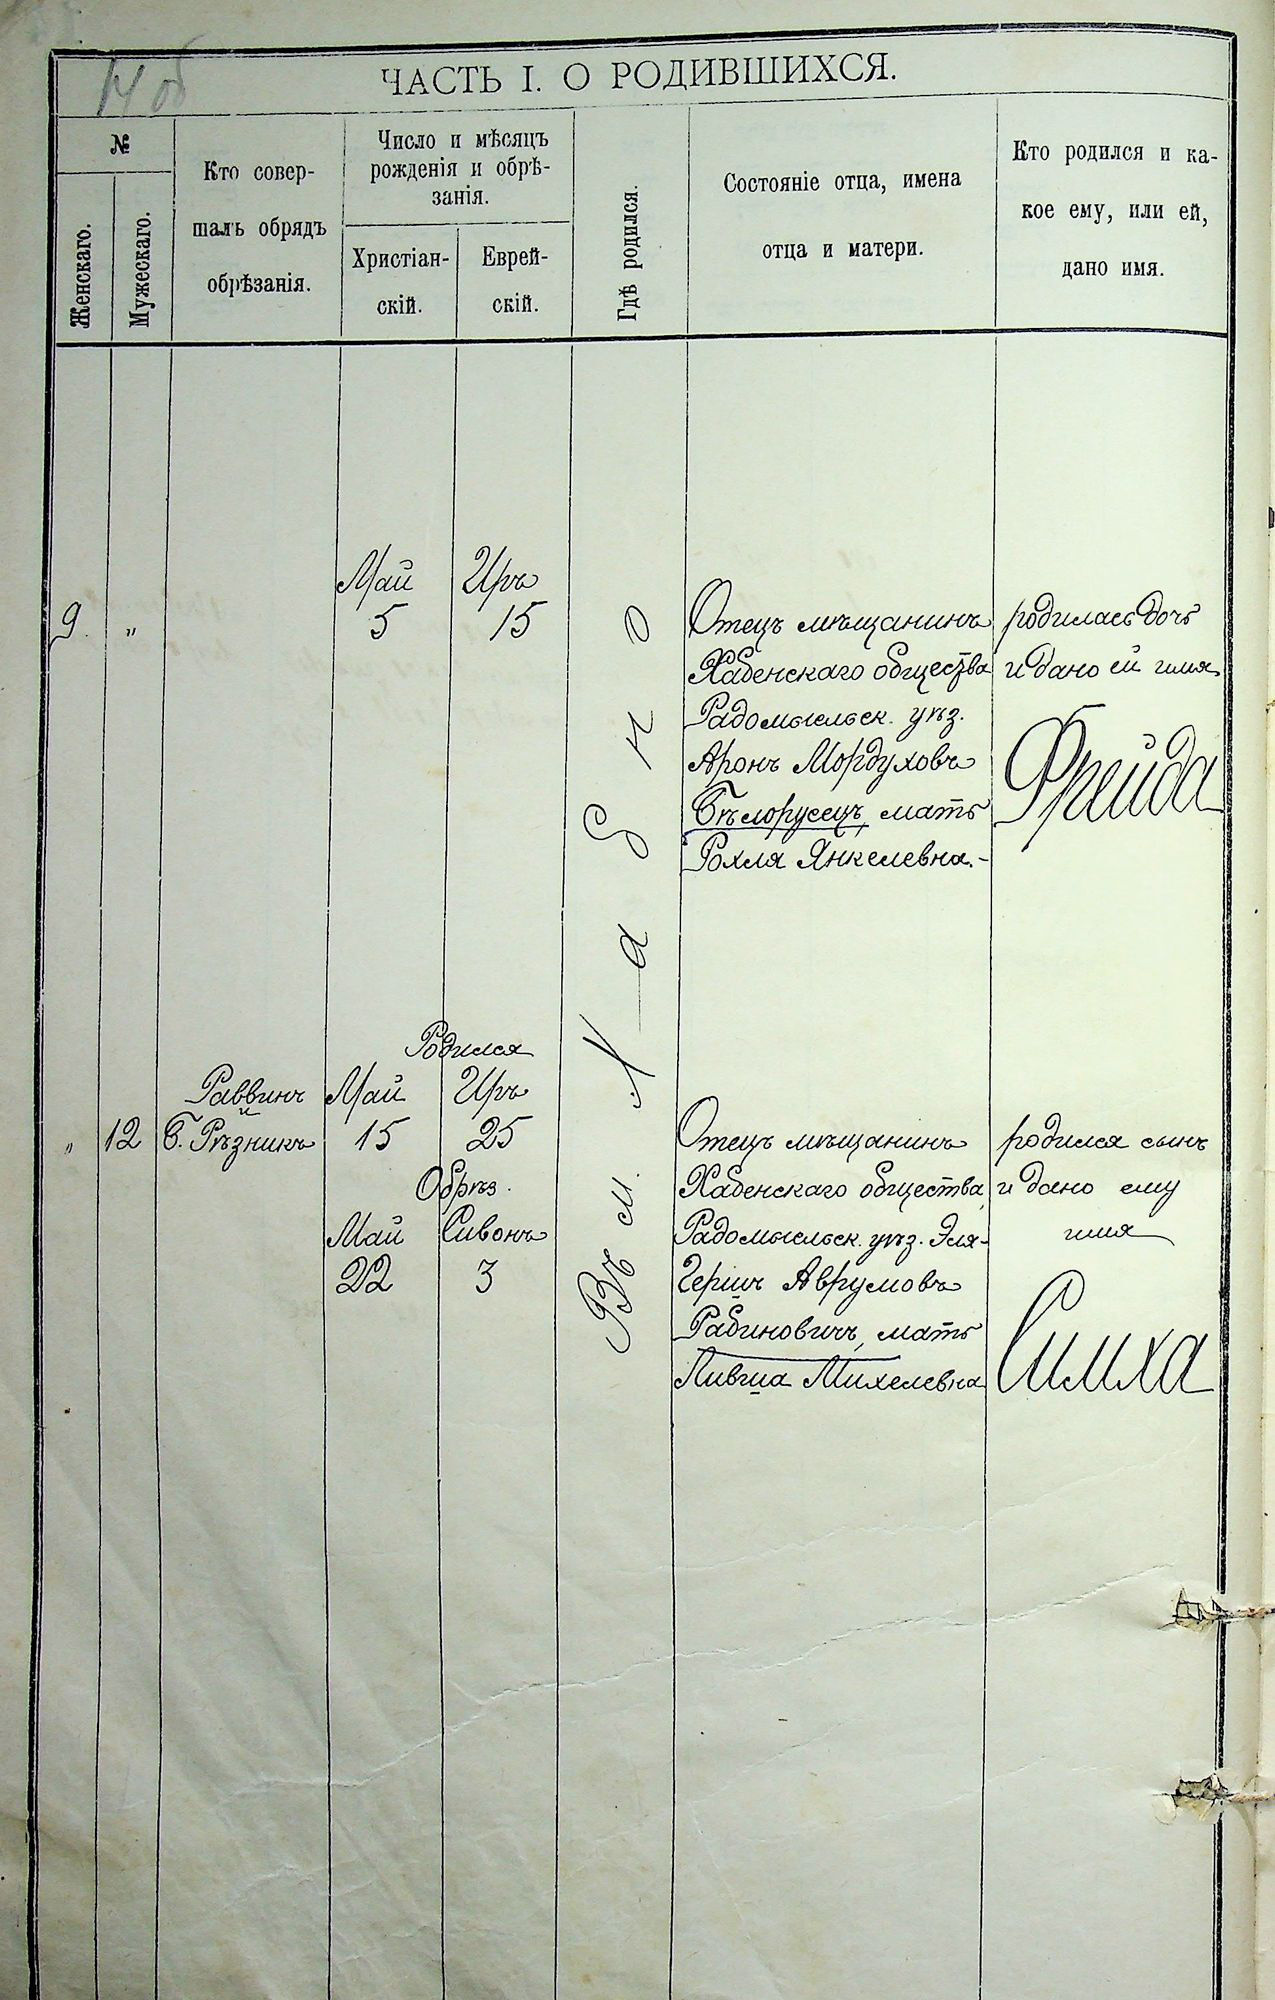 14 об
ЧАСТЬ I. О РОДИВШИХСЯ.
№
Женскаго.
Мужескаго.
Кто совер-
шалъ обрядъ
обрѣзанія.
Число и мѣсяцъ
рожденія и обрѣ-
занія.
Христіан-
скій.
Еврей-
скій.
Гдѣ родился.
Состояніе отца, имена
отца и матери.
Кто родился и ка-
кое ему, или ей,
дано имя.
Май
5
Иръ
15
9.
"
Въ м. Хабно
Отецъ мѣщанинъ
Хабенскаго общества
Радомысльск. уѣз.
Аронъ Мордуховъ
Бѣлорусецъ, мать
Рохля Янкелевна.-
родилась дочь
и дано ей имя
Фрейда
"
12
Раввинъ
и
Б. Рѣзникъ
Родился
Май
15
Иръ
25
Обрѣз.
Май
22
Сивонъ
3
Отецъ мѣщанинъ
Хабенскаго общества
Радомысльск. уѣз. Эля-
Гершъ Аврумовъ
Рабиновичъ, мать
Ливша Михелевна
родился сынъ
и дано ему
имя
Симха